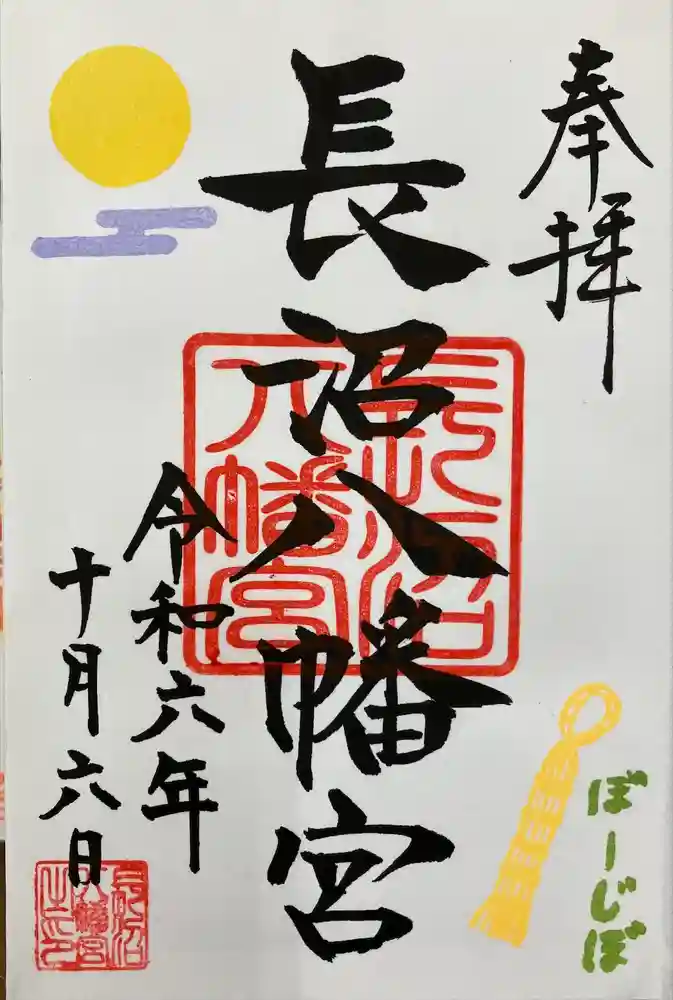 奉拝
長沼八幡宮
長沼八幡宮
令和六年
十月六日
長沼八幡宮之印
ぼーじぼ